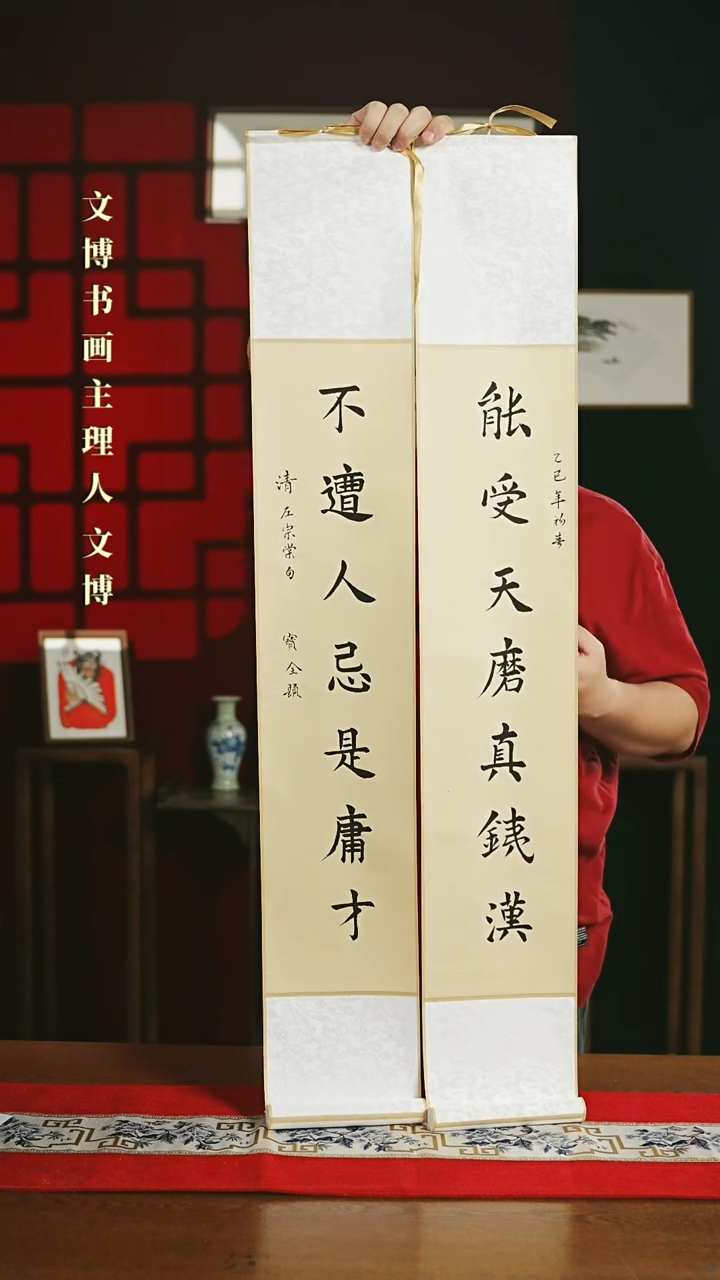 文博书画主理人 文博
能受天磨真銕漢
乙巳年初春
不遭人忌是庸才
清 左宗棠句 寳全題